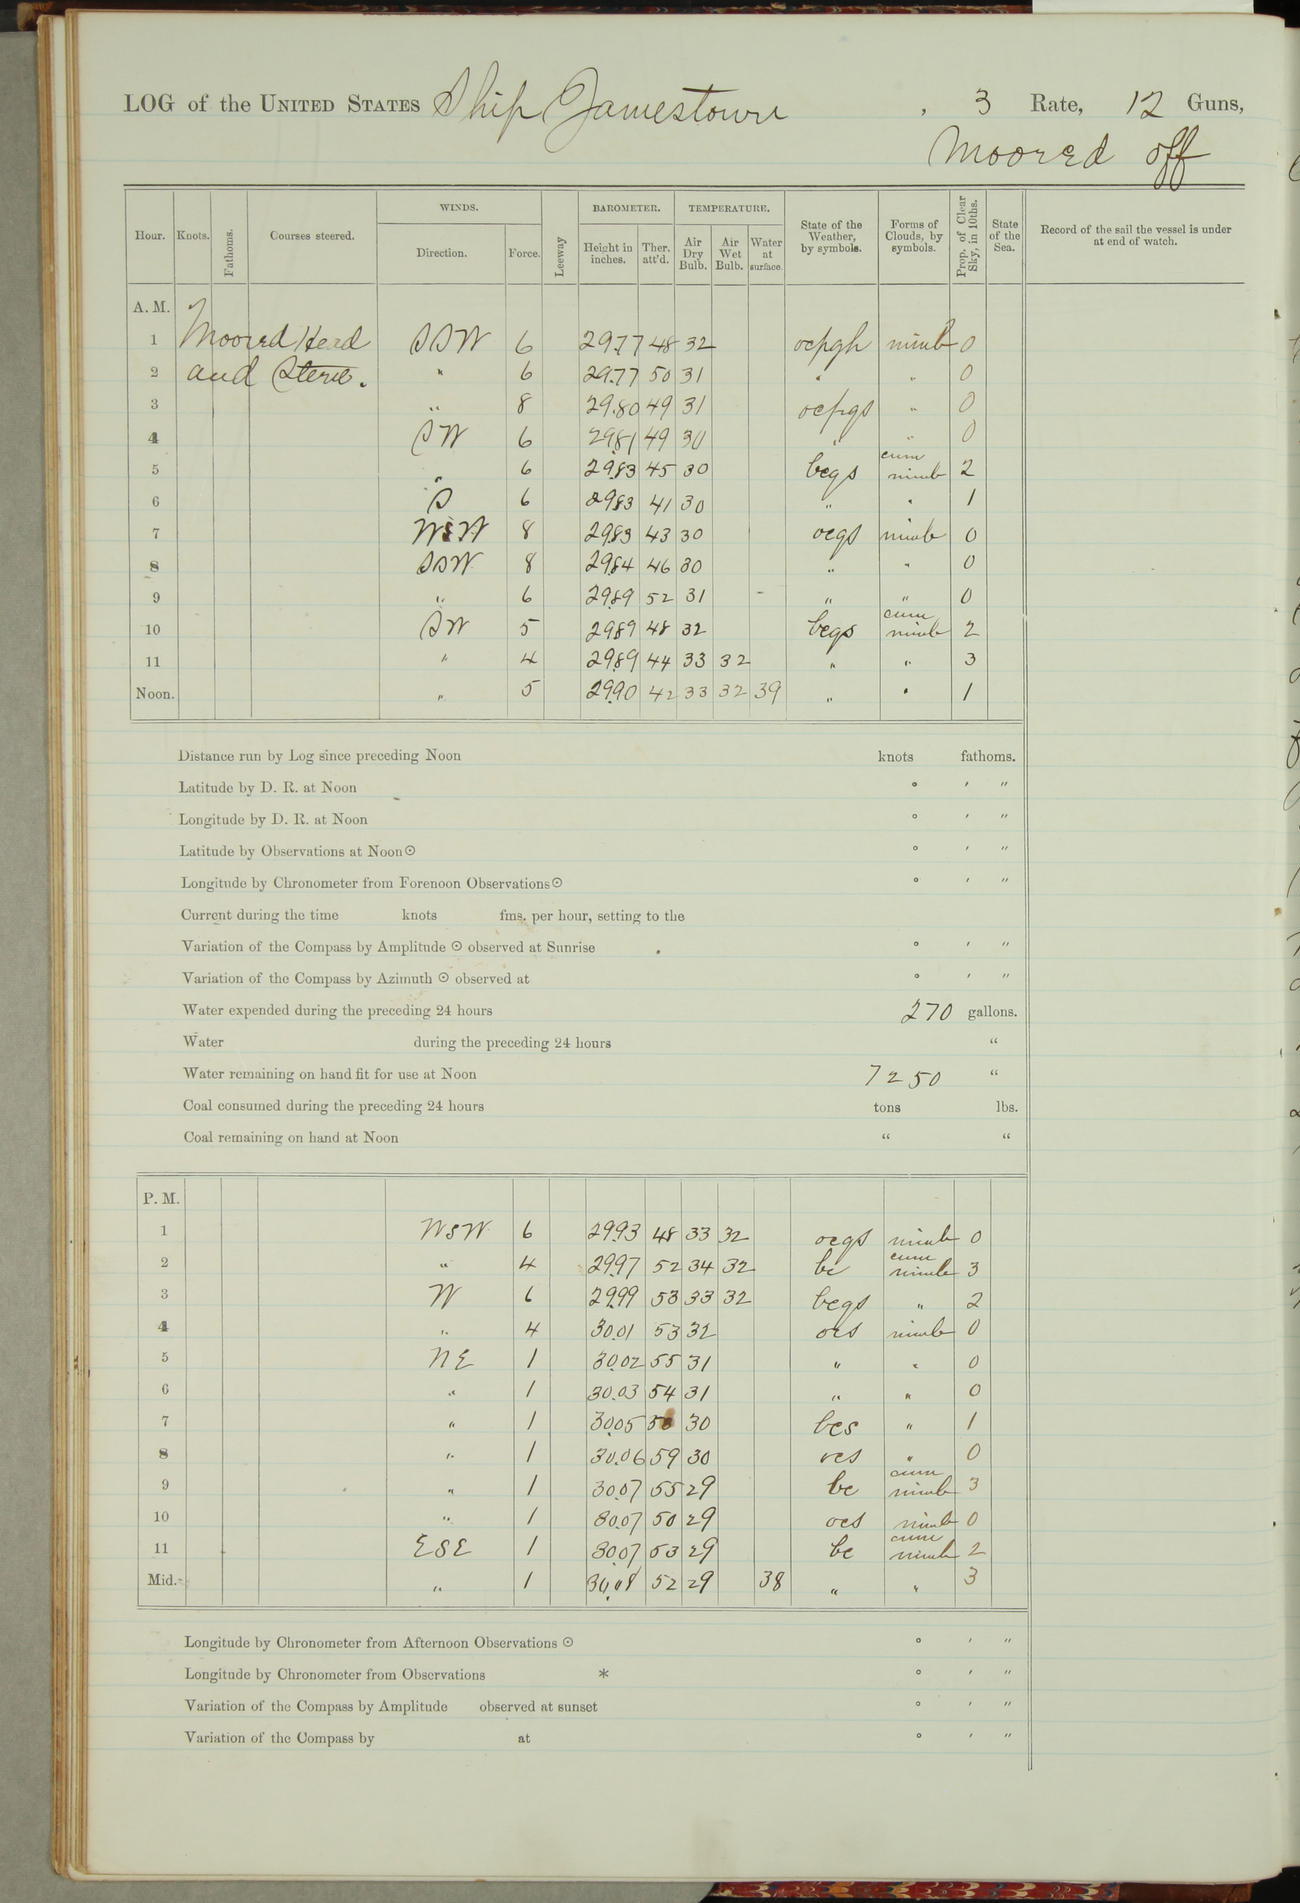 LOG of the UNITED STATES Ship Jamestown , 3 Rate, 12 Guns,
Moored off
Hour. Knots. Fathoms. Courses steered. WINDS. Direction. Force. Leeway BAROMETER. Height in inches. Ther. att'd. TEMPERATURE. Air Dry Bulb. Air Wet Bulb. Water at surface. State of the Weather, by symbols. Forms of Clouds, by symbols. Prop. of Clear Sky, in 10ths. State of the Sea. Record of the sail the vessel is under at end of watch.
A. M.
1 Moored Head SSW 6 29.77 48 32 ocpgh nimb 0
2 and Stern. " 6 29.77 50 31 " " 0
3 " 8 29.80 49 31 ocpgs " 0
4 SW 6 29.81 49 30 " " 0
5 " 6 29.83 45 30 bcgs cum nimb 2
6 S 6 29.83 41 30 " " 1
7 WSW 8 29.83 43 30 ocgs nimb 0
8 SSW 8 29.84 46 30 " " 0
9 " 6 29.89 52 31 " " 0
10 SW 5 29.89 48 32 bcgs cum nimb 2
11 " 4 29.89 44 33 32 " " 3
Noon. " 5 29.90 42 33 32 39 " " 1
Distance run by Log since preceding Noon knots fathoms.
Latitude by D. R. at Noon ° ′ ″
Longitude by D. R. at Noon ° ′ ″
Latitude by Observations at Noon ⊙ ° ′ ″
Longitude by Chronometer from Forenoon Observations ⊙ ° ′ ″
Current during the time knots fms. per hour, setting to the
Variation of the Compass by Amplitude ⊙ observed at Sunrise ° ′ ″
Variation of the Compass by Azimuth ⊙ observed at ° ′ ″
Water expended during the preceding 24 hours 270 gallons.
Water during the preceding 24 hours "
Water remaining on hand fit for use at Noon 7250 "
Coal consumed during the preceding 24 hours tons lbs.
Coal remaining on hand at Noon " "
P. M.
1 WSW 6 29.93 48 33 32 ocgs nimb 0
2 " 4 29.97 52 34 32 bc cum nimb 3
3 W 6 29.99 53 33 32 bcgs " 2
4 " 4 30.01 53 32 ocs nimb 0
5 NE 1 30.02 55 31 " " 0
6 " 1 30.03 54 31 " " 0
7 " 1 30.05 30 bcs " 1
8 " 1 30.06 59 30 ocs " 0
9 " 1 30.07 55 29 bc cum nimb 3
10 " 1 30.07 50 29 ocs nimb 0
11 ESE 1 30.07 53 29 bc cum nimb 2
Mid. " 1 30.08 52 29 38 " " 3
Longitude by Chronometer from Afternoon Observations ⊙ ° ′ ″
Longitude by Chronometer from Observations * ° ′ ″
Variation of the Compass by Amplitude observed at sunset ° ′ ″
Variation of the Compass by at ° ′ ″